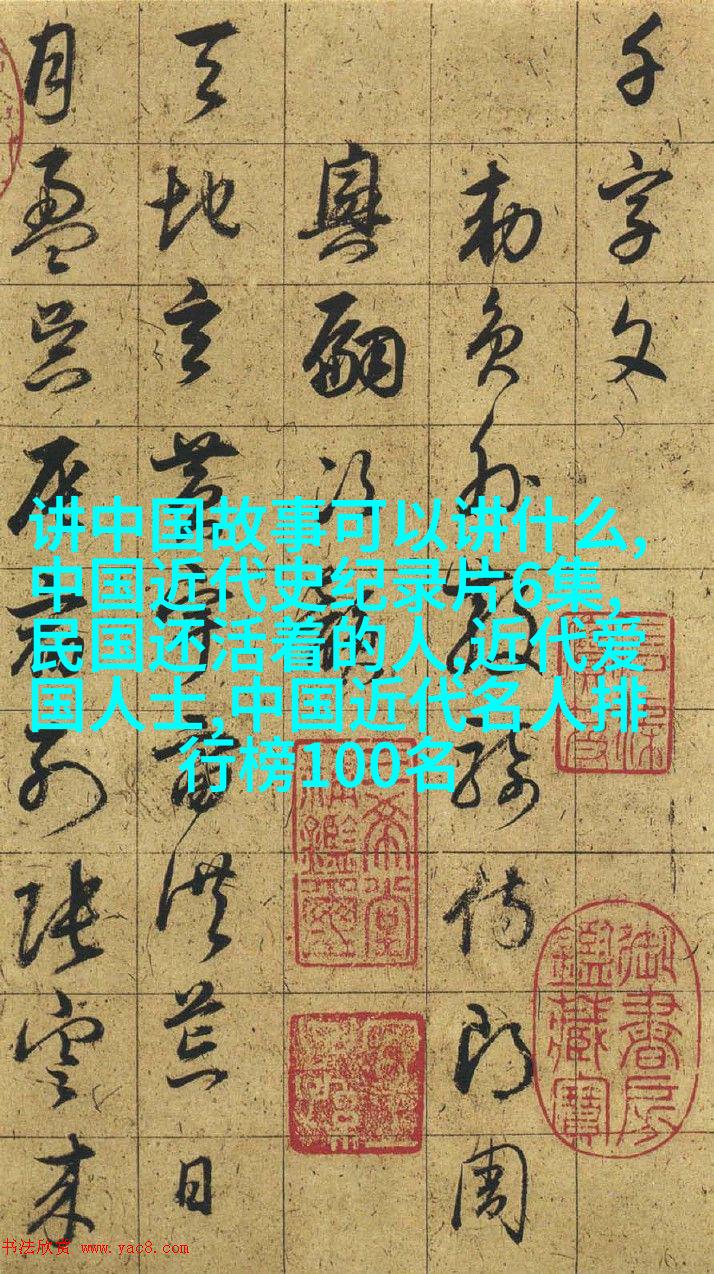 千字文
勅員外散騎侍郎周
興嗣次韻
天地玄黄宇宙洪荒日
月盈昃辰宿列張寒来
讲中国故事可以讲什么,
中国近代史纪录片6集,
民国还活着的人,近代爱
国人士,中国近代名人排
行榜100名
御書房
鑑藏寶
三希堂
精鑑璽
书法欣赏 www.yac8.com